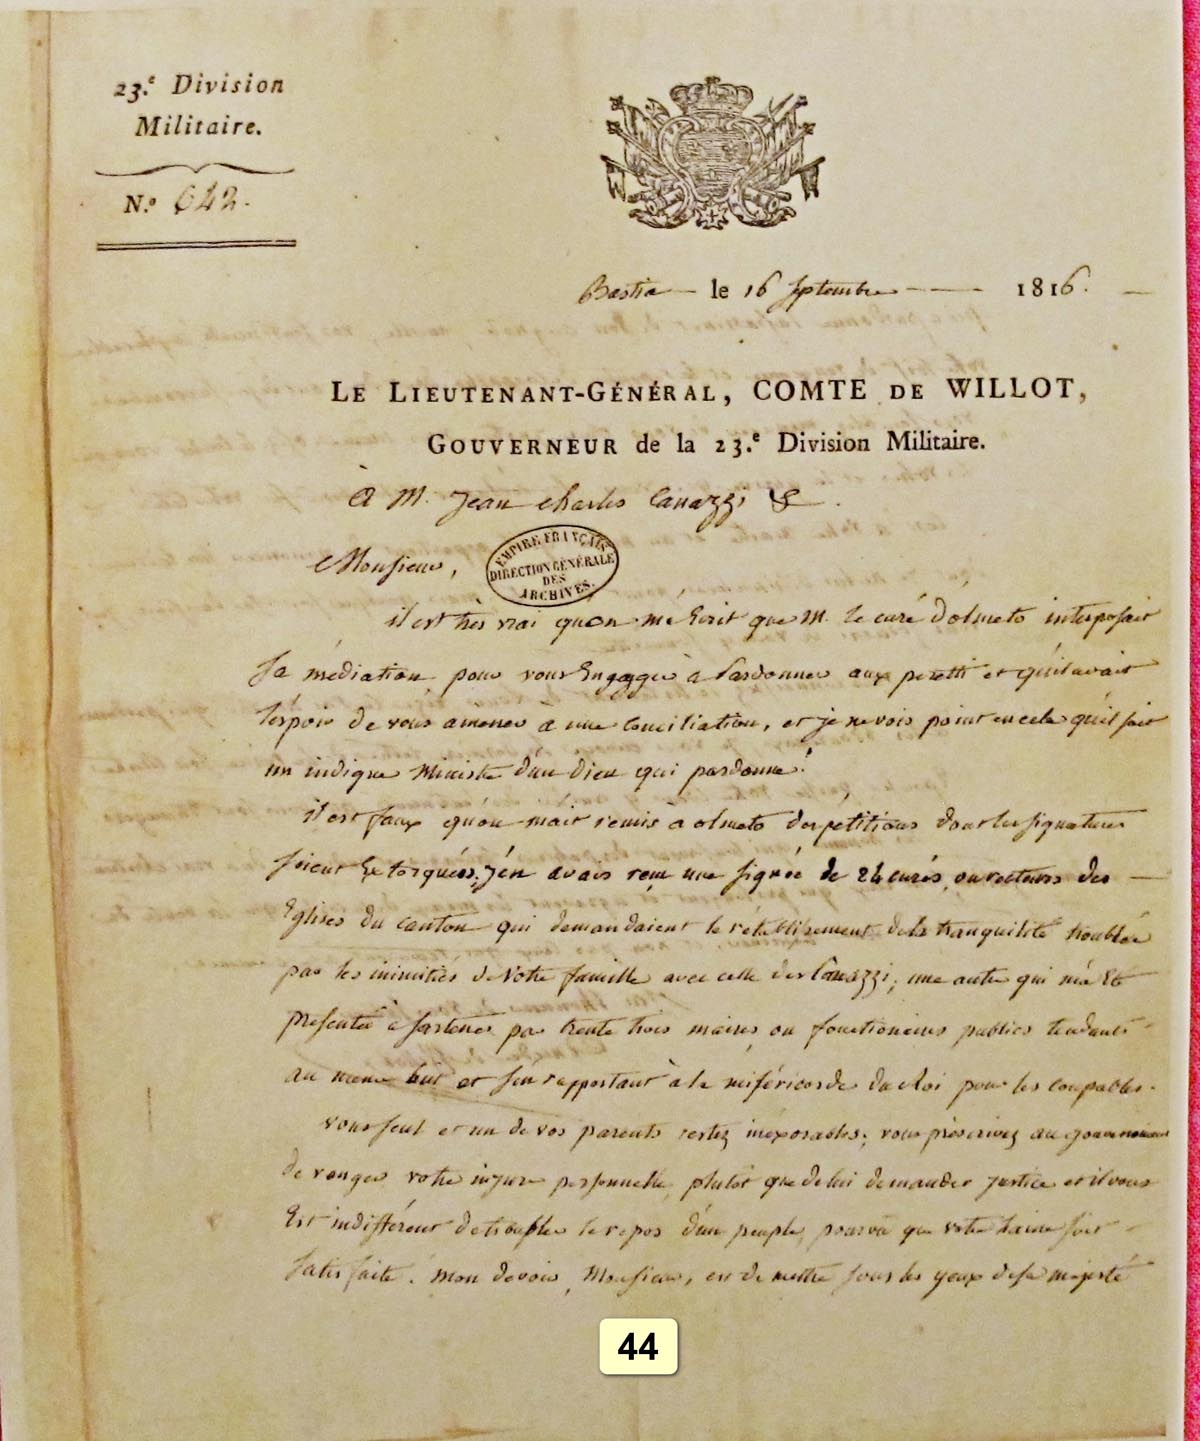 23.e Division
Militaire.
N.o 642.
Bastia le 16 Septembre 1816.
LE LIEUTENANT-GÉNÉRAL, COMTE DE WILLOT,
GOUVERNEUR de la 23.e Division Militaire.
à M. Jean Charles Canazzi
EMPIRE FRANÇAIS
DIRECTION GÉNÉRALE
DES
ARCHIVES.
Monsieur,
il est très vrai qu'on m'a Ecrit que M. le curé d'olmeto interposait
sa médiation, pour vous Engager à Pardonner aux peretti et qu'il avait
l'espoir de vous amener à une Conciliation, et je ne vois point en cela qu'il soit
un indigne Ministre d'un Dieu qui pardonne!
il est faux qu'on m'ait remis à olmeto des pétitions dont les signatures
soient Extorquées; j'en avais reçu une signée de 24 curés, ou recteurs des
Eglises du canton qui demandaient le rétablissement de la tranquilité troublée
par les inimitiés de Votre famille avec celle des Canazzi; une autre qui m'a été
présentée à sartene, par trente trois maires, ou fonctionaires publics tendante
au même but et s'en rapportant à la miséricorde du Roi pour les coupables.
vous seul et un de vos parents restez inexorables; vous préscrivez au gouvernement
de venger votre injure personnelle, plutôt que de lui demander justice et il vous
Est indifférent de troubler le repos d'un peuple, pourvu que votre haine soit
satisfaite. mon devoir, Monsieur, est de mettre sous les yeux de sa majesté
44